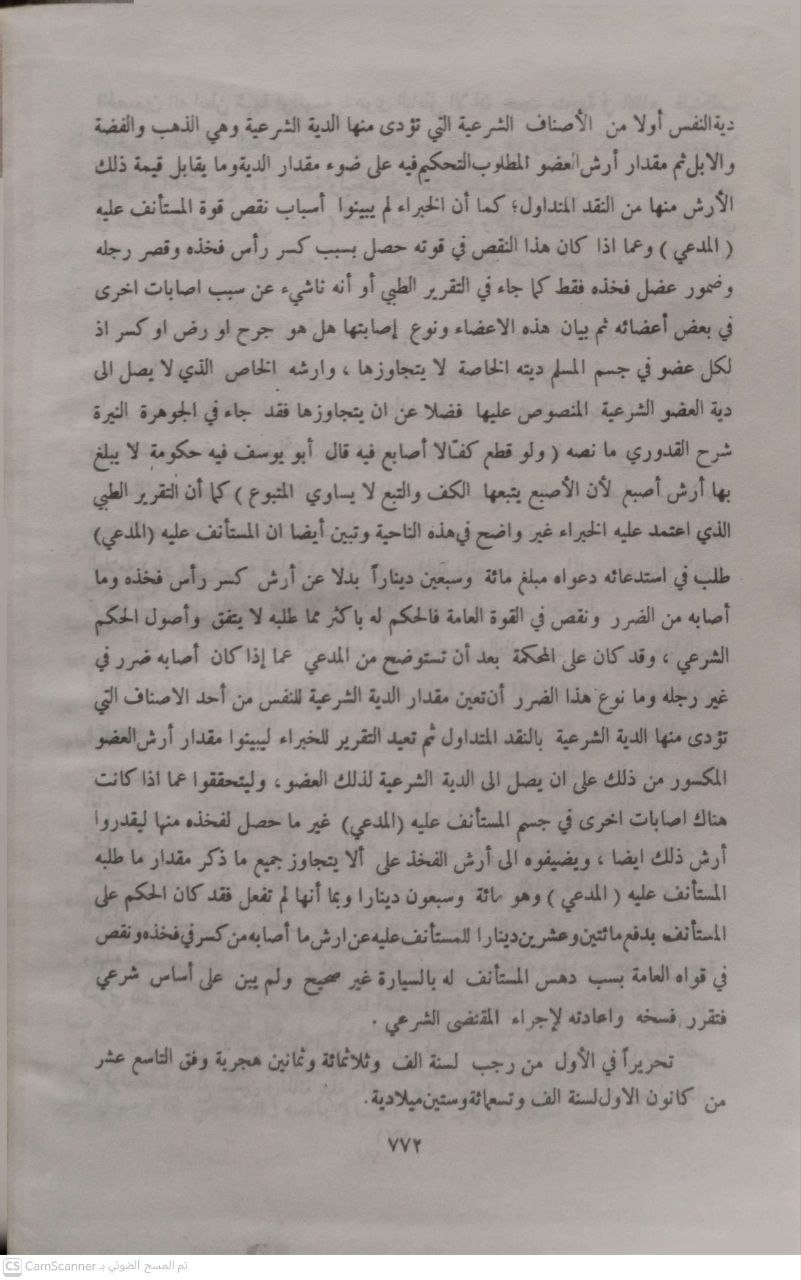 دية النفس أولا من الأصناف الشرعية التي تؤدى منها الدية الشرعية وهي الذهب والفضة
والابل ثم مقدار أرش العضو المطلوب التحكيم فيه على ضوء مقدار الدية وما يقابل قيمة ذلك
الأرش منها من النقد المتداول؛ كما أن الخبراء لم يبينوا أسباب نقص قوة المستأنف عليه
( المدعي ) وعما اذا كان هذا النقص في قوته حصل بسبب كسر رأس فخذه وقصر رجله
وضمور عضل فخذه فقط كما جاء في التقرير الطبي أو أنه ناشيء عن سبب اصابات اخرى
في بعض أعضائه ثم بيان هذه الاعضاء ونوع إصابتها هل هو جرح او رض او كسر اذ
لكل عضو في جسم المسلم ديته الخاصة لا يتجاوزها ، وارشه الخاص الذي لا يصل الى
دية العضو الشرعية المنصوص عليها فضلا عن ان يتجاوزها فقد جاء في الجوهرة النيرة
شرح القدوري ما نصه ( ولو قطع كفاً لا أصابع فيه قال أبو يوسف فيه حكومة لا يبلغ
بها أرش أصبع لأن الأصبع يتبعها الكف والتبع لا يساوي المتبوع ) كما أن التقرير الطبي
الذي اعتمد عليه الخبراء غير واضح في هذه الناحية وتبين أيضا ان المستأنف عليه (المدعي)
طلب في استدعائه دعواه مبلغ مائة وسبعين ديناراً بدلا عن أرش كسر رأس فخذه وما
أصابه من الضرر ونقص في القوة العامة فالحكم له باكثر مما طلبه لا يتفق وأصول الحكم
الشرعي ، وقد كان على المحكمة بعد أن تستوضح من المدعي عما إذا كان أصابه ضرر في
غير رجله وما نوع هذا الضرر أن تعين مقدار الدية الشرعية للنفس من أحد الاصناف التي
تؤدى منها الدية الشرعية بالنقد المتداول ثم تعيد التقرير للخبراء ليبينوا مقدار أرش العضو
المكسور من ذلك على ان يصل الى الدية الشرعية لذلك العضو ، وليتحققوا عما اذا كانت
هناك اصابات اخرى في جسم المستأنف عليه (المدعي) غير ما حصل لفخذه منها ليقدروا
أرش ذلك ايضا ، ويضيفوه الى أرش الفخذ على ألا يتجاوز جميع ما ذكر مقدار ما طلبه
المستأنف عليه ( المدعي ) وهو مائة وسبعون دينارا وبما أنها لم تفعل فقد كان الحكم على
المستأنف بدفع مائتين وعشرين دينارا للمستأنف عليه عن ارش ما أصابه من كسر في فخذه ونقص
في قواه العامة بسب دهس المستأنف له بالسيارة غير صحيح ولم يبن على أساس شرعي
فتقرر فسخه واعادته لإجراء المقتضى الشرعي .
تحريراً في الأول من رجب لسنة الف وثلاثمائة وثمانين هجرية وفق التاسع عشر
من كانون الاول لسنة الف وتسعمائة وستين ميلادية .
٧٧٢
CS CamScanner تم المسح الضوئي بـ